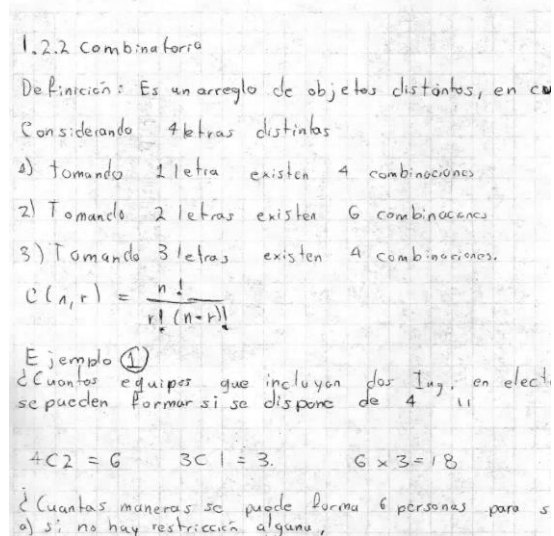 1.2.2 Combinatoria
Definición: Es un arreglo de objetos distintos, en
Considerando 4 letras distintas
1) tomando 1 letra existen 4 combinaciones
2) Tomando 2 letras existen 6 combinaciones
3) Tomando 3 letras existen 4 combinaciones.
C(n,r) = n!
r! (n-r)!
Ejemplo ①
¿Cuantos equipos que incluyan dos Ing. en elect
se pueden formar si se dispone de 4 "
4C2 = 6 3C1 = 3. 6 x 3 = 18
¿Cuantas maneras se puede forma 6 personas para s
a) si no hay restricción alguna,